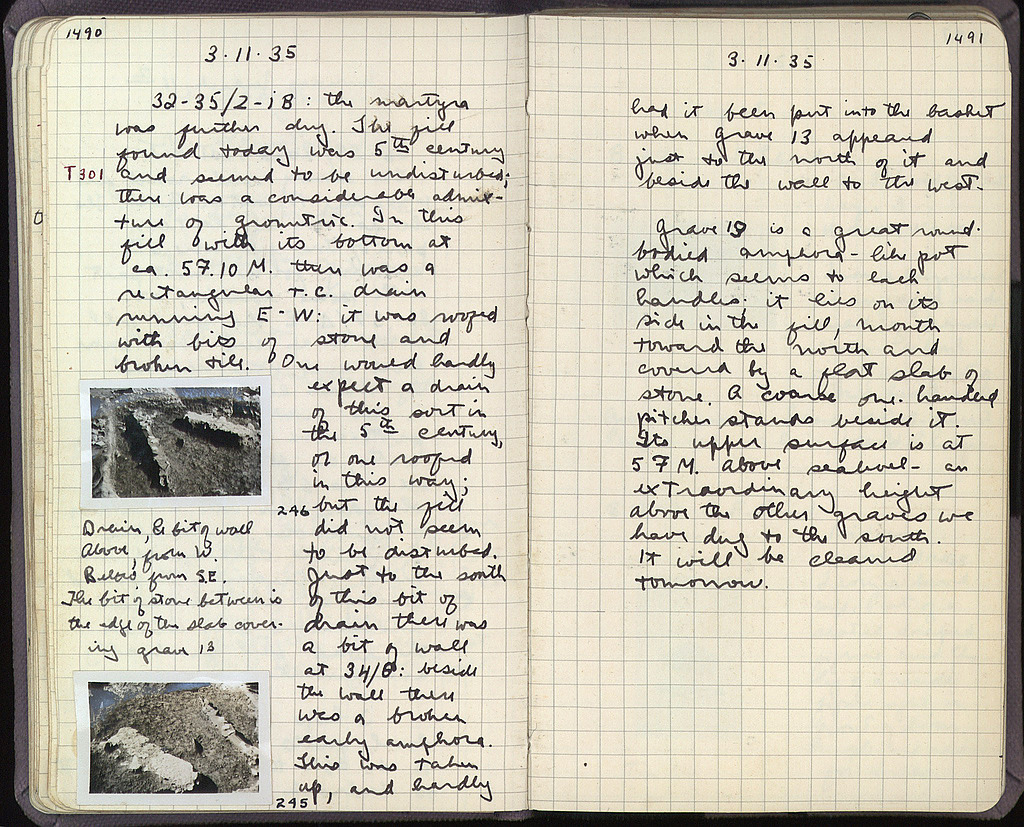 1490
3·11·35
32-35/2-iB : the martyra
was further dug. The fill
found today was 5th century
T301 and seemed to be undisturbed;
there was a considerable admix-
ture of geometric. In this
fill with its bottom at
ca. 57.10 M. there was a
rectangular T.C. drain
running E-W: it was roofed
with bits of stone and
broken tile. One would hardly
expect a drain
of this sort in
the 5th century,
or one roofed
in this way;
246 but the fill
did not seem
to be disturbed.
Just to the south
of this bit of
drain there was
a bit of wall
at 34/Θ: beside
the wall there
was a broken
early amphora.
This was taken
up, and hardly
Drain, & bit of wall
Above, from W.
Below from S.E.
The bit of stone between is
the edge of the slab cover-
ing grave 13
245
1491
3·11·35
had it been put into the basket
when grave 13 appeared
just to the north of it and
beside the wall to the west.
Grave 13 is a great round-
bodied amphora-like pot
which seems to lack
handles; it lies on its
side in the fill, mouth
toward the north and
covered by a flat slab of
stone. A coarse one-handled
pitcher stands beside it.
Its upper surface is at
57M. above sealevel - an
extraordinary height
above the other graves we
have dug to the south.
It will be cleaned
tomorrow.